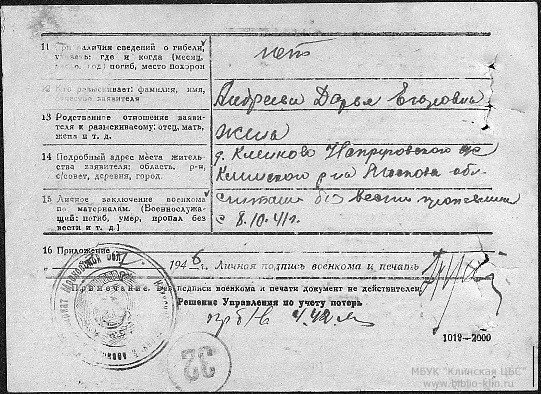 11 При наличии сведений о гибели,
указать: где и когда (месяц,
число, год) погиб, место похорон
нет
12 Кто разыскивает: фамилия, имя,
отчество заявителя
Андреева Дарья Егоровна
13 Родственное отношение заяви-
теля к разыскиваемому: отец, мать,
жена и т. д.
жена
14 Подробный адрес места житель-
ства заявителя: область, р-н,
с/совет, деревня, город.
д. Кленково Напруговской с/с
Клинского р-на Москов. обл.
15 Личное заключение военкома
по материалам. (Военнослужа-
щий: погиб, умер, пропал без
вести и т. д.]
считать без вести пропавшим
с 8.10.41г.
16 Приложение
1946г. Личная подпись военкома и печать
Примечание. подписи военкома и печати документ не действителен
Решение Управления по учету потерь
пр б/в 42
1012—2000
35
МБУК "Клинская ЦБС"
www.biblio-klin.ru